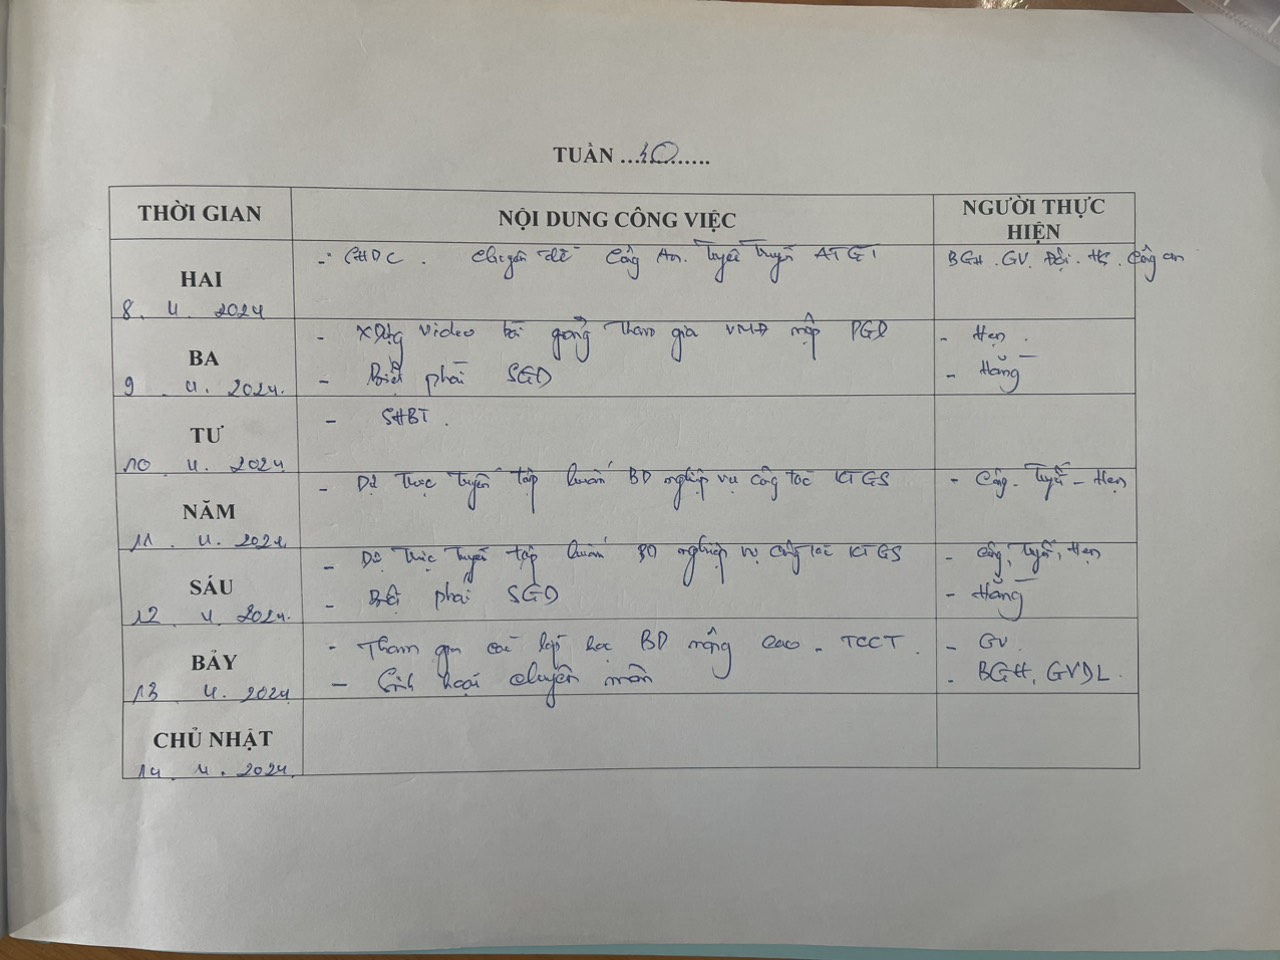 TUẦN ...30.......
THỜI GIAN NỘI DUNG CÔNG VIỆC NGƯỜI THỰC HIỆN
HAI
8. 4. 2024
- SHDC. Chuyên đề Công An. Tuyên Truyền ATGT
BGH. GV. Đội. HS. Công an
BA
9. 4. 2024.
- XDựng Video bài giảng Tham gia nộp PGD
- Hẹn.
- Biệt phái SGD
- Hằng
TƯ
10. 4. 2024
- SHBT.
NĂM
11. 4. 2024
- Dự Trực Tuyến tập huấn BD nghiệp vụ công tác KTGS
- Công - Tuyến - Hẹn
SÁU
12. 4. 2024.
- Dự Trực Tuyến tập huấn BD nghiệp vụ công tác KTGS
- Công, Tuyến, Hẹn
- Biệt phái SGD
- Hằng
BẢY
13. 4. 2024
- Tham gia các lớp học BD nâng cao - TCCT.
- GV.
- Sinh hoạt chuyên môn
- BGH, GVDL.
CHỦ NHẬT
14. 4. 2024.